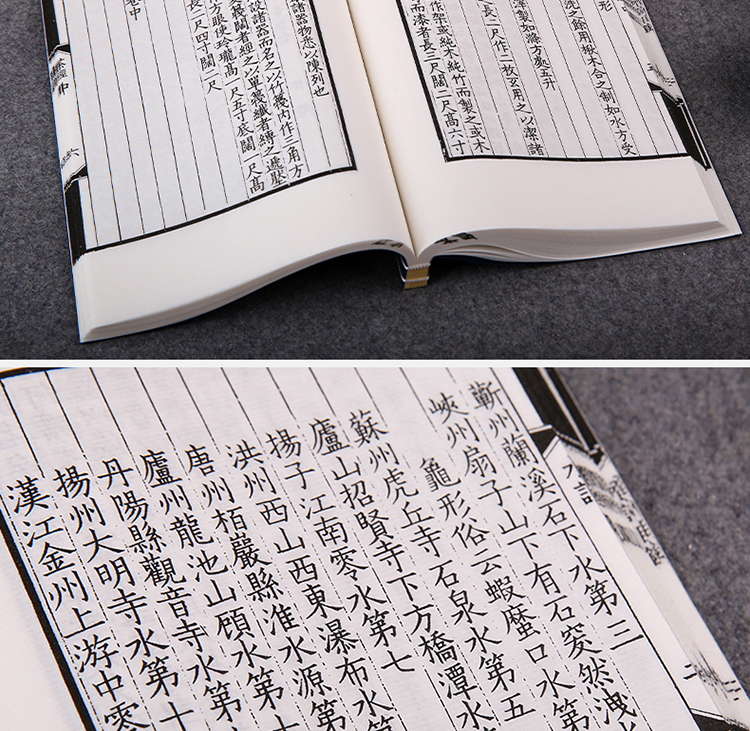 形
洗之餘用楸木合之制如水方受
滓製如滌方處五升
長二尺作二枚互用之以潔諸
作架或純木純竹而製之或木
而漆者長三尺闊二尺高六寸
諸器物悉以陳列也
故諸器而名之以竹篾內作三角方
篾闊者經之以單篾纖者縛之遞壓
方眼使玲瓏高一尺五寸底闊一尺高
尺四寸闊二尺
卷中
中
六
蘄州蘭溪石下水第三
峽州扇子山下有石窔然洩
龜形俗云蝦蟇口水第
蘇州虎丘寺石泉水第五
廬山招賢寺下方橋潭水
揚子江南零水第七
洪州西山西東瀑布水
唐州栢巖縣淮水源第
廬州龍池山頋水第十
丹陽縣觀音寺水第十
揚州大明寺水第
漢江金州上游中零